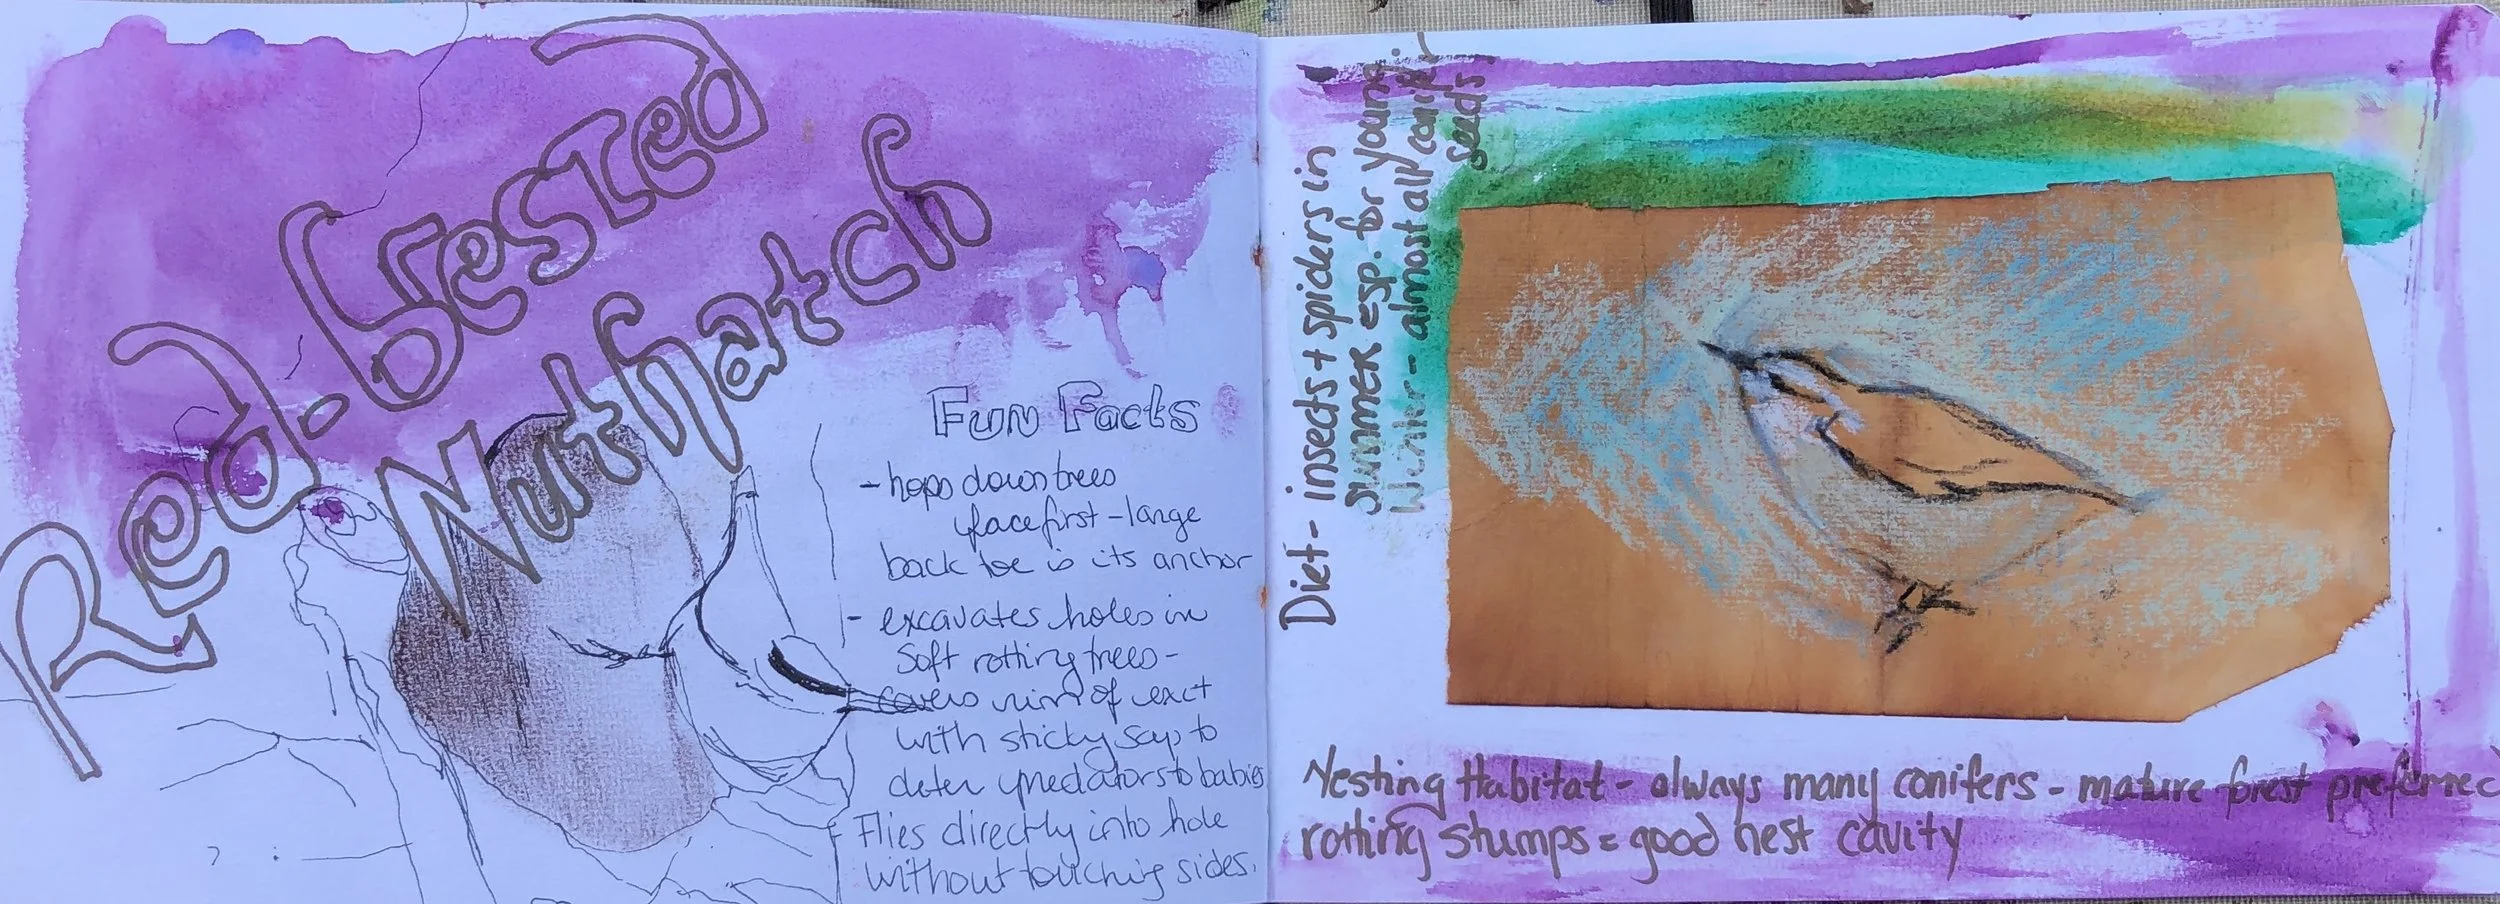 Red.brested
Nuthatch
Fun Facts
- hops down trees
face first - large
back toe is its anchor
- excavates holes in
soft rotting trees -
covers rim of exct
with sticky sap to
deter predators to babies
Flies directly into hole
without touching sides.
Diet - insects + spiders in
summer esp. for young.
Winter - almost all conifer
seeds.
Nesting Habitat - always many conifers - mature forest preferred
rotting stumps = good nest cavity